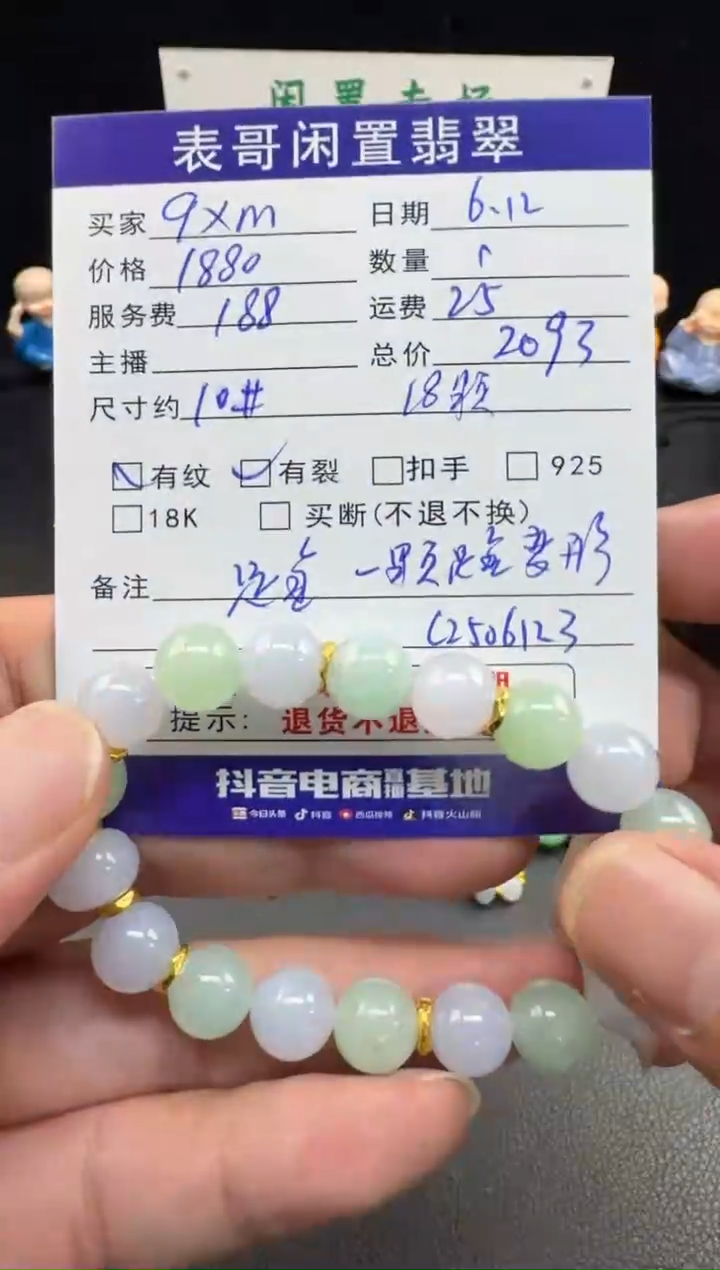 闲置专场
表哥闲置翡翠
买家 9xm 日期 6.12
价格 1880 数量 1
服务费 188 运费 25
主播 总价 2093
尺寸约 10# 18颗
有纹 有裂 扣手 925
18K 买断(不退不换)
备注 一颗足金变形
C2506123
提示: 退货不退
抖音电商直播基地
今日头条 抖音 西瓜视频 抖音火山版